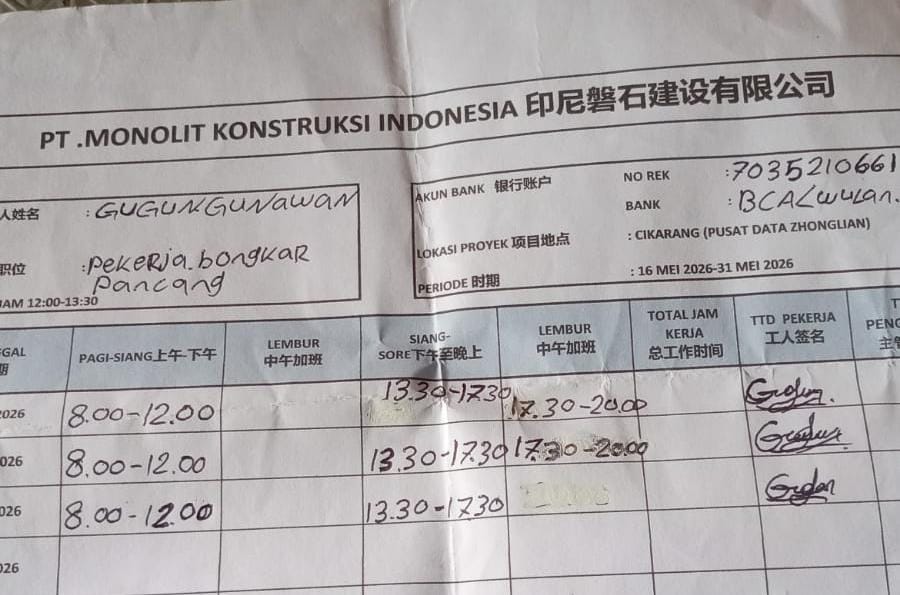 PT .MONOLIT KONSTRUKSI INDONESIA 印尼磐石建设有限公司
人姓名 : GUGUNGUNAWAN
职位 : PEKERJA.bONGKAR
PANCANG
JAM 12:00-13:30
AKUN BANK 银行账户 NO REK :7035210661
BANK : BCA
LOKASI PROYEK 项目地点 : CIKARANG (PUSAT DATA ZHONGLIAN)
PERIODE 时期 : 16 MEI 2026-31 MEI 2026
GGAL 期 PAGI-SIANG上午-下午 LEMBUR 中午加班 SIANG-SORE下午至晚上 LEMBUR 中午加班 TOTAL JAM KERJA 总工作时间 TTD PEKERJA 工人签名 PENG 主管
2026 8.00-12.00 13.30-17.30 17.30-20.00
026 8.00-12.00 13.30-17.30 17.30-20.00
026 8.00-12.00 13.30-17.30
026